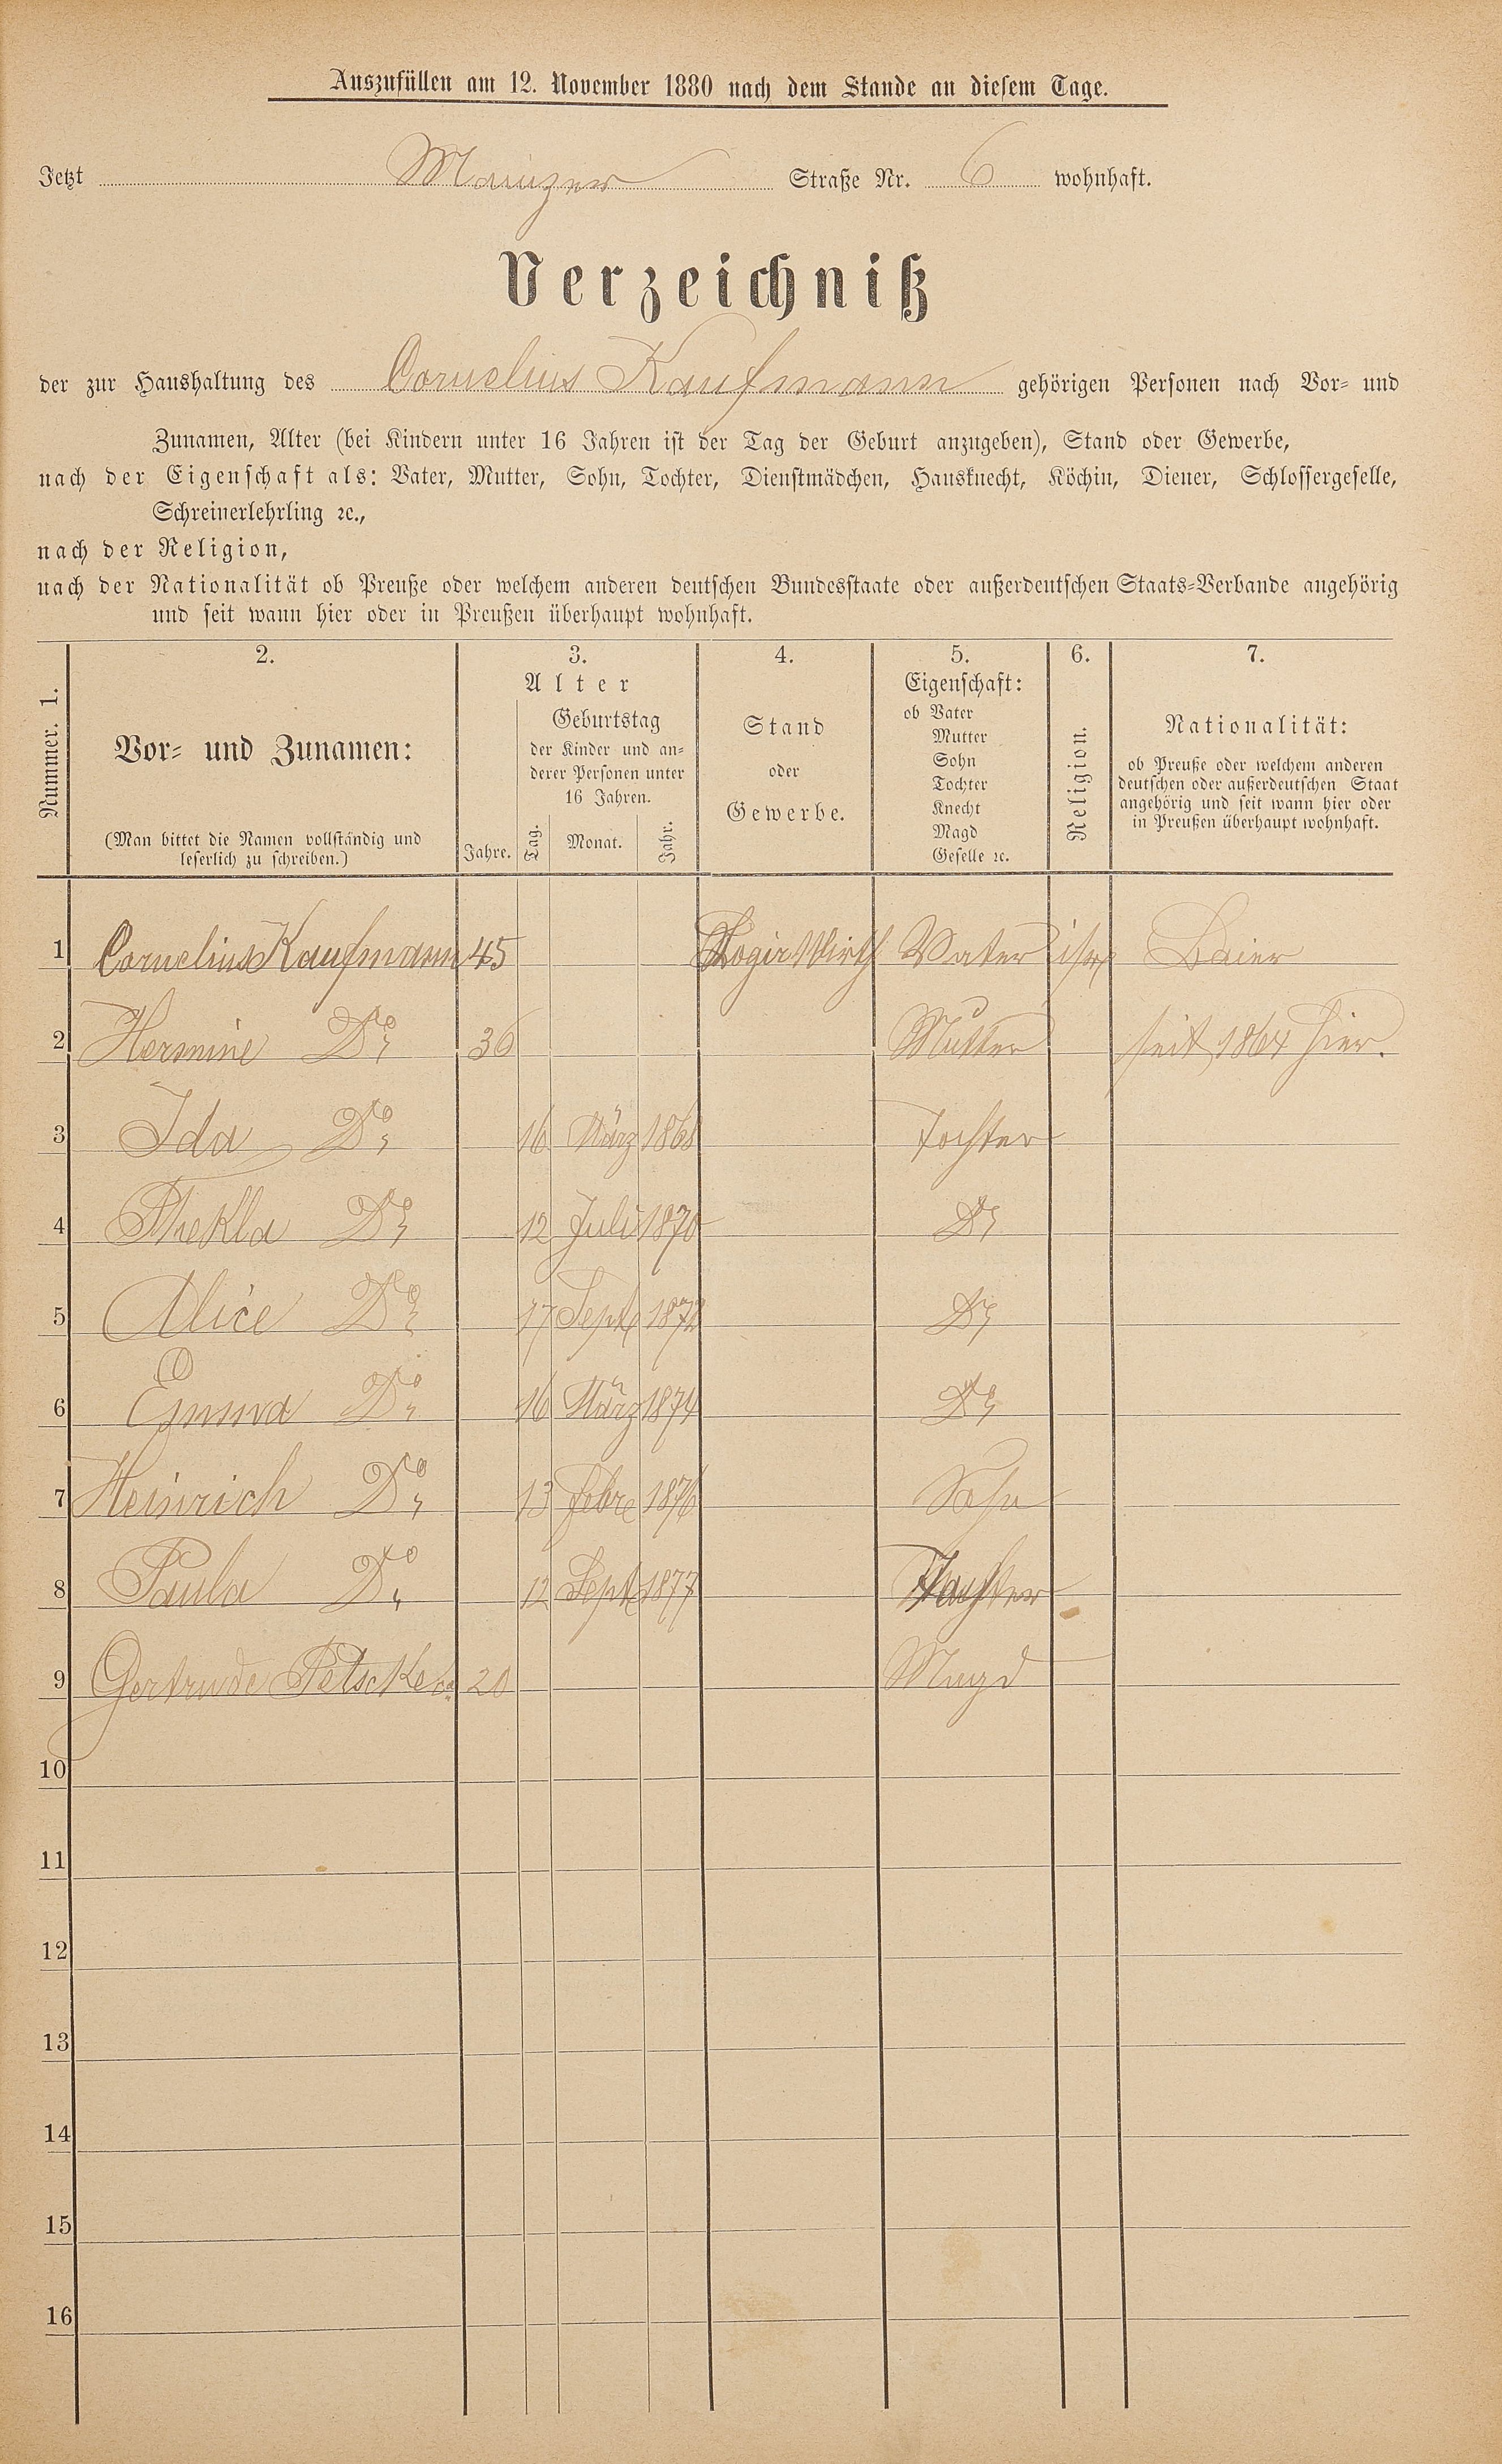 Auszufüllen am 12. November 1880 nach dem Stande an diesem Tage.
Jetzt Mainzer Straße Nr. 6 wohnhaft.
Verzeichniß
der zur Haushaltung des Cornelius Kaufmann gehörigen Personen nach Vor- und
Zunamen, Alter (bei Kindern unter 16 Jahren ist der Tag der Geburt anzugeben), Stand oder Gewerbe,
nach der Eigenschaft als: Vater, Mutter, Sohn, Tochter, Dienstmädchen, Hausknecht, Köchin, Diener, Schlossergeselle,
Schreinerlehrling ꝛc.,
nach der Religion,
nach der Nationalität ob Preuße oder welchem anderen deutschen Bundesstaate oder außerdeutschen Staats-Verbande angehörig
und seit wann hier oder in Preußen überhaupt wohnhaft.
Nummer. 1.
2.
Vor- und Zunamen:
(Man bittet die Namen vollständig und
leserlich zu schreiben.)
3.
Alter
Jahre.
Geburtstag
der Kinder und an-
derer Personen unter
16 Jahren.
Tag. Monat. Jahr.
4.
Stand
oder
Gewerbe.
5.
Eigenschaft:
ob Vater
Mutter
Sohn
Tochter
Knecht
Magd
Geselle ꝛc.
6.
Religion.
7.
Nationalität:
ob Preuße oder welchem anderen
deutschen oder außerdeutschen Staat
angehörig und seit wann hier oder
in Preußen überhaupt wohnhaft.
1 Cornelius Kaufmann 45 Logir Wirth Vater isr. Baier
2 Hermine Do 36 Mutter seit 1864 hier.
3 Ida Do 16 März 1868 Tochter
4 Thekla Do 12 Juli 1870 Do
5 Alice Do 17 Sept 1872 Do
6 Emma Do 16 März 1874 Do
7 Heinrich Do 13 Febr 1876 Sohn
8 Paula Do 12 Sept 1877 Tochter
9 Gertrude 20 Magd
10
11
12
13
14
15
16